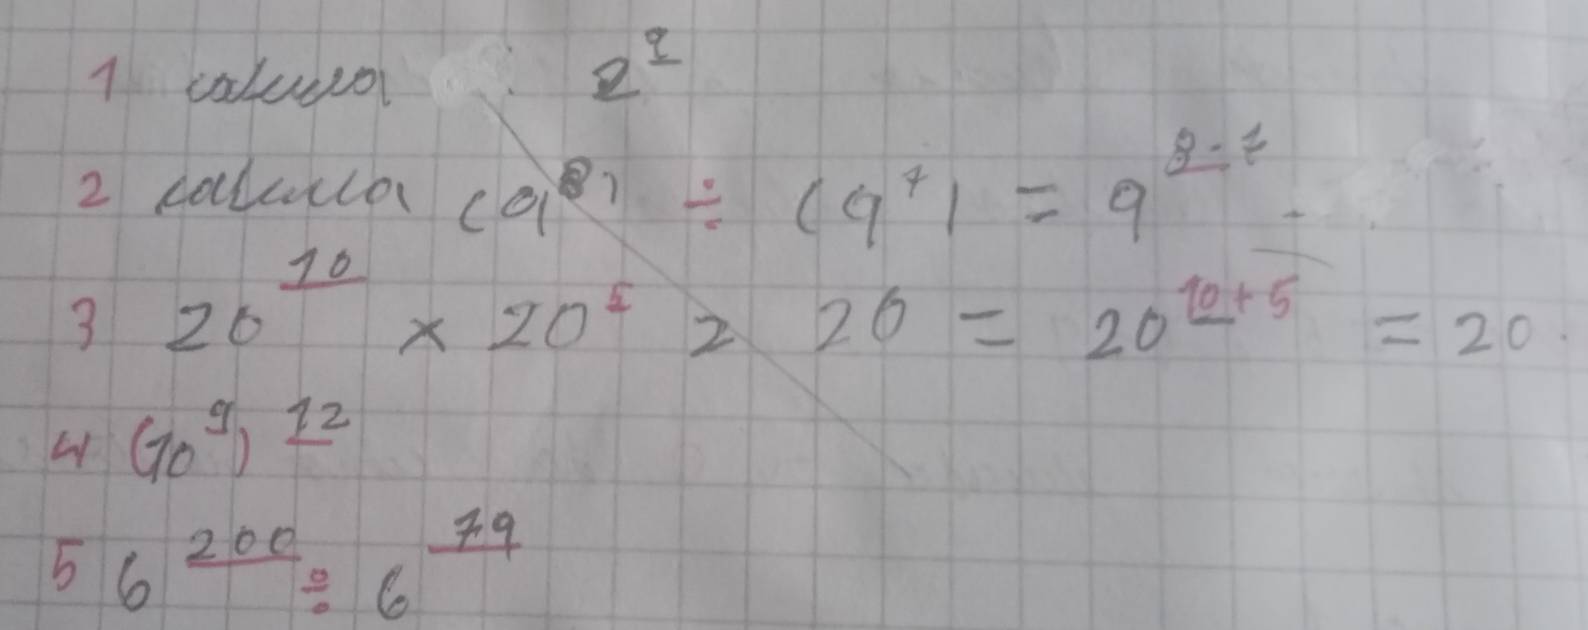 1 calcula : 2⁹
2 calcula (9⁸) ÷ (9⁷) = 9⁸⁻⁷ =
3 20¹⁰ × 20⁵ = 20 = 20¹⁰⁺⁵ = 20
4 (10⁹)¹²
5 6²⁰⁰ ÷ 6⁷⁹